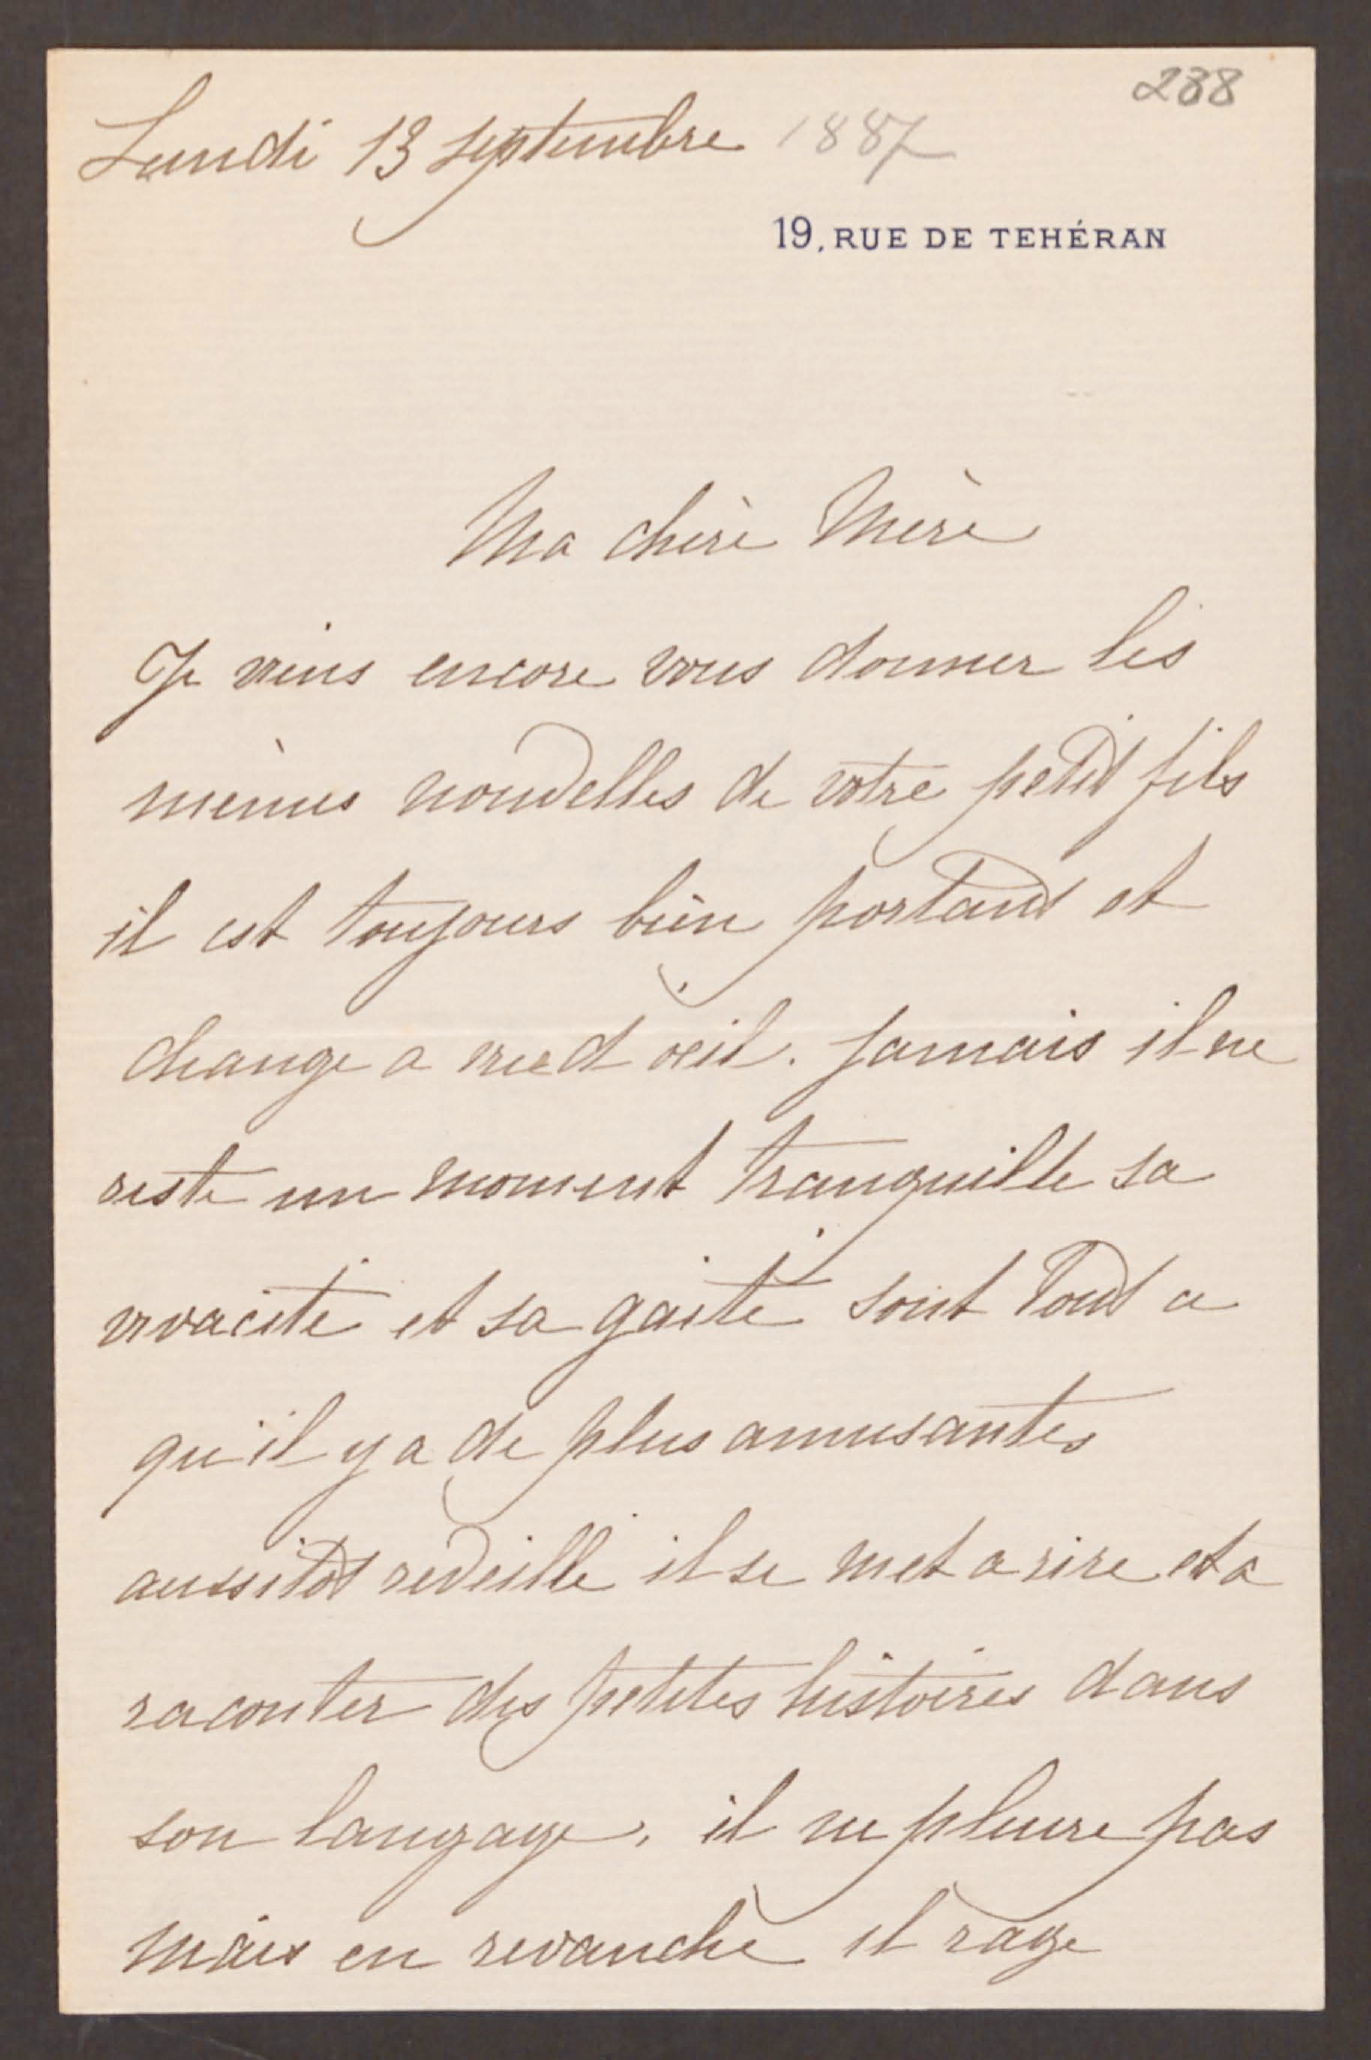 238
Lundi 13 septembre 1887
19, RUE DE TEHÉRAN
Ma chère Mère
Je viens encore vous donner les
mêmes nouvelles de votre petit fils
il est toujours bien portant et
change a vue d œil. Jamais il ne
reste un moment tranquille sa
vivacité et sa gaité sont tout ce
qu'il y a de plus amusantes
aussitôt reveillé il se met a rire et a
raconter des petites histoires dans
son langage. il ne pleure pas
mais en revanche il rage